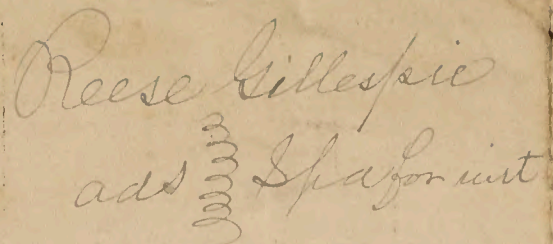 Reese Gillespie
ads Spa for wit